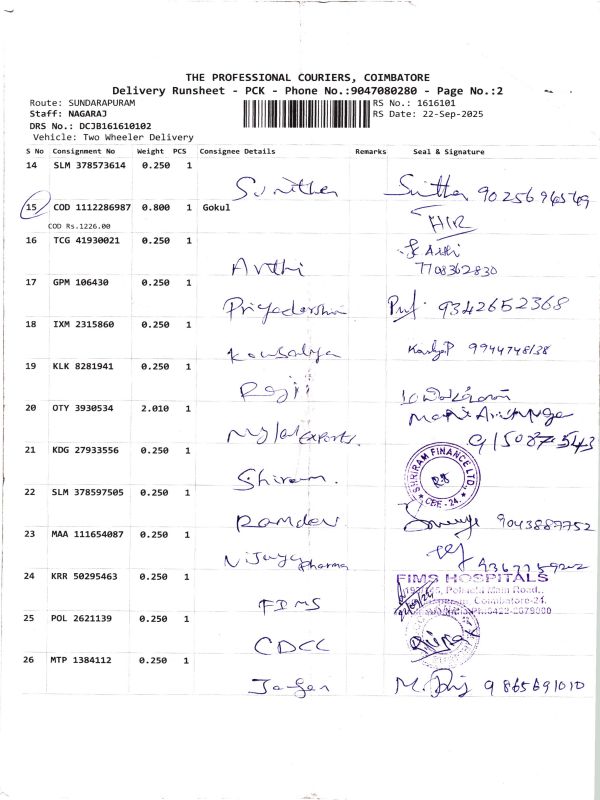 THE PROFESSIONAL COURIERS, COIMBATORE
Delivery Runsheet - PCK - Phone No.:9047080280 - Page No.:2
Route: SUNDARAPURAM
RS No.: 1616101
Staff: NAGARAJ
RS Date: 22-Sep-2025
DRS No.: DCJB161610102
Vehicle: Two Wheeler Delivery
S No Consignment No Weight PCS Consignee Details Remarks Seal & Signature
14 SLM 378573614 0.250 1
15 COD 1112286987 0.800 1 Gokul
COD Rs.1226.00
16 TCG 41930021 0.250 1
Arthi
7708362830
17 GPM 106430 0.250 1
Priyadarshini 9342652368
18 IXM 2315860 0.250 1
Kousalya
19 KLK 8281941 0.250 1
20 OTY 3930534 2.010 1
Exports.
21 KDG 27933556 0.250 1
SHRIRAM FINANCE LTD.
CBE - 24.
Shriram.
22 SLM 378597505 0.250 1
Ramdev 9043889752
23 MAA 111654087 0.250 1
Vijaya pharma
24 KRR 50295463 0.250 1
FIMS HOSPITALS
Coimbatore-24.
FIMS
25 POL 2621139 0.250 1
CDCC
26 MTP 1384112 0.250 1
9865691010